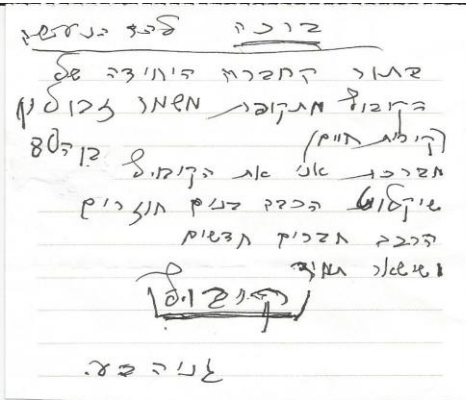 ברכה לחג
בתור החברה היחידה של
הקיבוץ מתקופת משמר זבולון
(קרית חיים)
מברכת אני את הקיבוץ בן ה 80
שיקלוט הרבה בנים חוזרים
הרבה חברים חדשים
ושישאר תמיד
גניה בע.